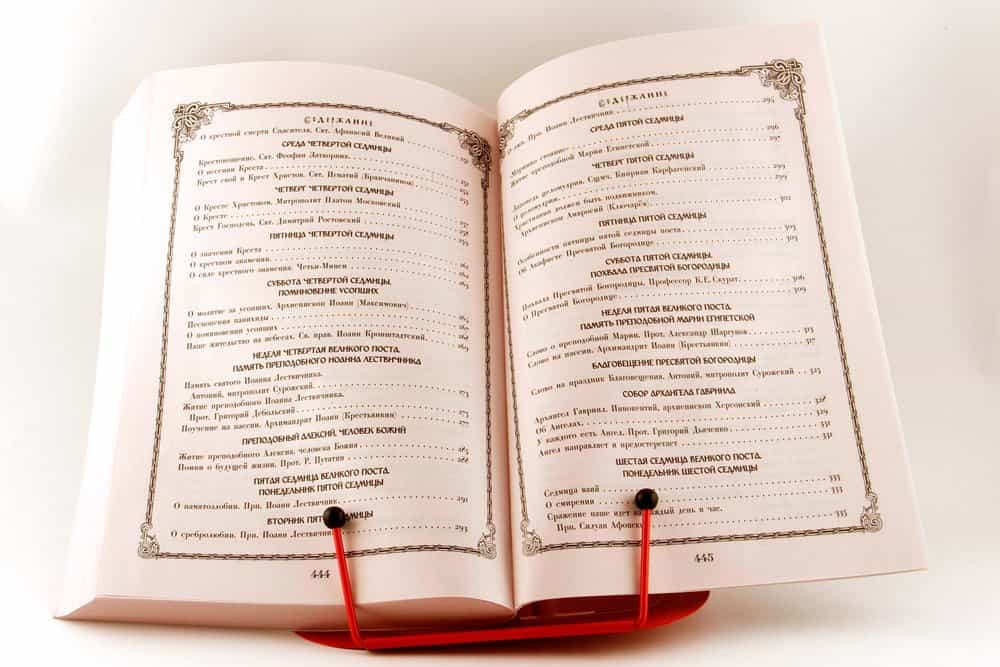 СОДЕРЖАНИЕ
О крестной смерти Спасителя. Свт. Афанасий Великий
СРЕДА ЧЕТВЕРТОЙ СЕДМИЦЫ
Крестоношение. Свт. Феофан Затворник.
О несении Креста
Крест свой и Крест Христов. Свт. Игнатий (Брянчанинов)
ЧЕТВЕРГ ЧЕТВЕРТОЙ СЕДМИЦЫ
О Кресте Христовом. Митрополит Платон Московский
О Кресте
Крест Господень. Свт. Димитрий Ростовский
ПЯТНИЦА ЧЕТВЕРТОЙ СЕДМИЦЫ
О значении Креста
О крестном знамении.
О силе крестного знамения. Четьи-Минеи
СУББОТА ЧЕТВЕРТОЙ СЕДМИЦЫ.
ПОМИНОВЕНИЕ УСОПШИХ
О молитве за усопших. Архиепископ Иоанн (Максимович)
Песнопения панихиды
О поминовении усопших
Наше жительство на небесах. Св. прав. Иоанн Кронштадтский. 269
НЕДЕЛЯ ЧЕТВЕРТАЯ ВЕЛИКОГО ПОСТА.
ПАМЯТЬ ПРЕПОДОБНОГО ИОАННА ЛЕСТВИЧНИКА
Память святого Иоанна Лествичника.
Антоний, митрополит Сурожский. 273
Житие преподобного Иоанна Лествичника.
Прот. Григорий Дебольский 275
Поучение на пассии. Архимандрит Иоанн (Крестьянкин) 277
ПРЕПОДОБНЫЙ АЛЕКСИЙ, ЧЕЛОВЕК БОЖИЙ
Житие преподобного Алексия, человека Божия 285
Помни о будущей жизни. Прот. Р. Путятин 288
ПЯТАЯ СЕДМИЦА ВЕЛИКОГО ПОСТА.
ПОНЕДЕЛЬНИК ПЯТОЙ СЕДМИЦЫ
О памятозлобии. Прп. Иоанн Лествичник. 291
ВТОРНИК ПЯТОЙ СЕДМИЦЫ
О сребролюбии. Прп. Иоанн Лествичник 293
444
СОДЕРЖАНИЕ
О лжи. Прп. Иоанн Лествичник 294
СРЕДА ПЯТОЙ СЕДМИЦЫ
Мариино стояние 296
Житие преподобной Марии Египетской 297
ЧЕТВЕРГ ПЯТОЙ СЕДМИЦЫ
Заповедь целомудрия. Сщмч. Киприан Карфагенский 299
О целомудрии. 299
Христианин должен быть подвижником.
Архиепископ Амвросий (Ключарёв) 302
ПЯТНИЦА ПЯТОЙ СЕДМИЦЫ
Особенности пятницы пятой седмицы поста 305
Об Акафисте Пресвятой Богородице 305
СУББОТА ПЯТОЙ СЕДМИЦЫ.
ПОХВАЛА ПРЕСВЯТОЙ БОГОРОДИЦЫ
Похвала Пресвятой Богородицы. Профессор К.Е. Скурат 306
О Пресвятой Богородице 309
НЕДЕЛЯ ПЯТАЯ ВЕЛИКОГО ПОСТА.
ПАМЯТЬ ПРЕПОДОБНОЙ МАРИИ ЕГИПЕТСКОЙ
Слово о преподобной Марии. Прот. Александр Шаргунов 313
Слово на пассии. Архимандрит Иоанн (Крестьянкин) 317
БЛАГОВЕЩЕНИЕ ПРЕСВЯТОЙ БОГОРОДИЦЫ
Слово на праздник Благовещения. Антоний, митрополит Сурожский 325
СОБОР АРХАНГЕЛА ГАВРИИЛА
Архангел Гавриил. Иннокентий, архиепископ Херсонский 328
Об Ангелах. 329
У каждого есть Ангел. Прот. Григорий Дьяченко 331
Ангел направляет и предостерегает 331
ШЕСТАЯ СЕДМИЦА ВЕЛИКОГО ПОСТА.
ПОНЕДЕЛЬНИК ШЕСТОЙ СЕДМИЦЫ
Седмица ваий 333
О смирении 333
Сражение наше идет каждый день и час.
Прп. Силуан 335
445